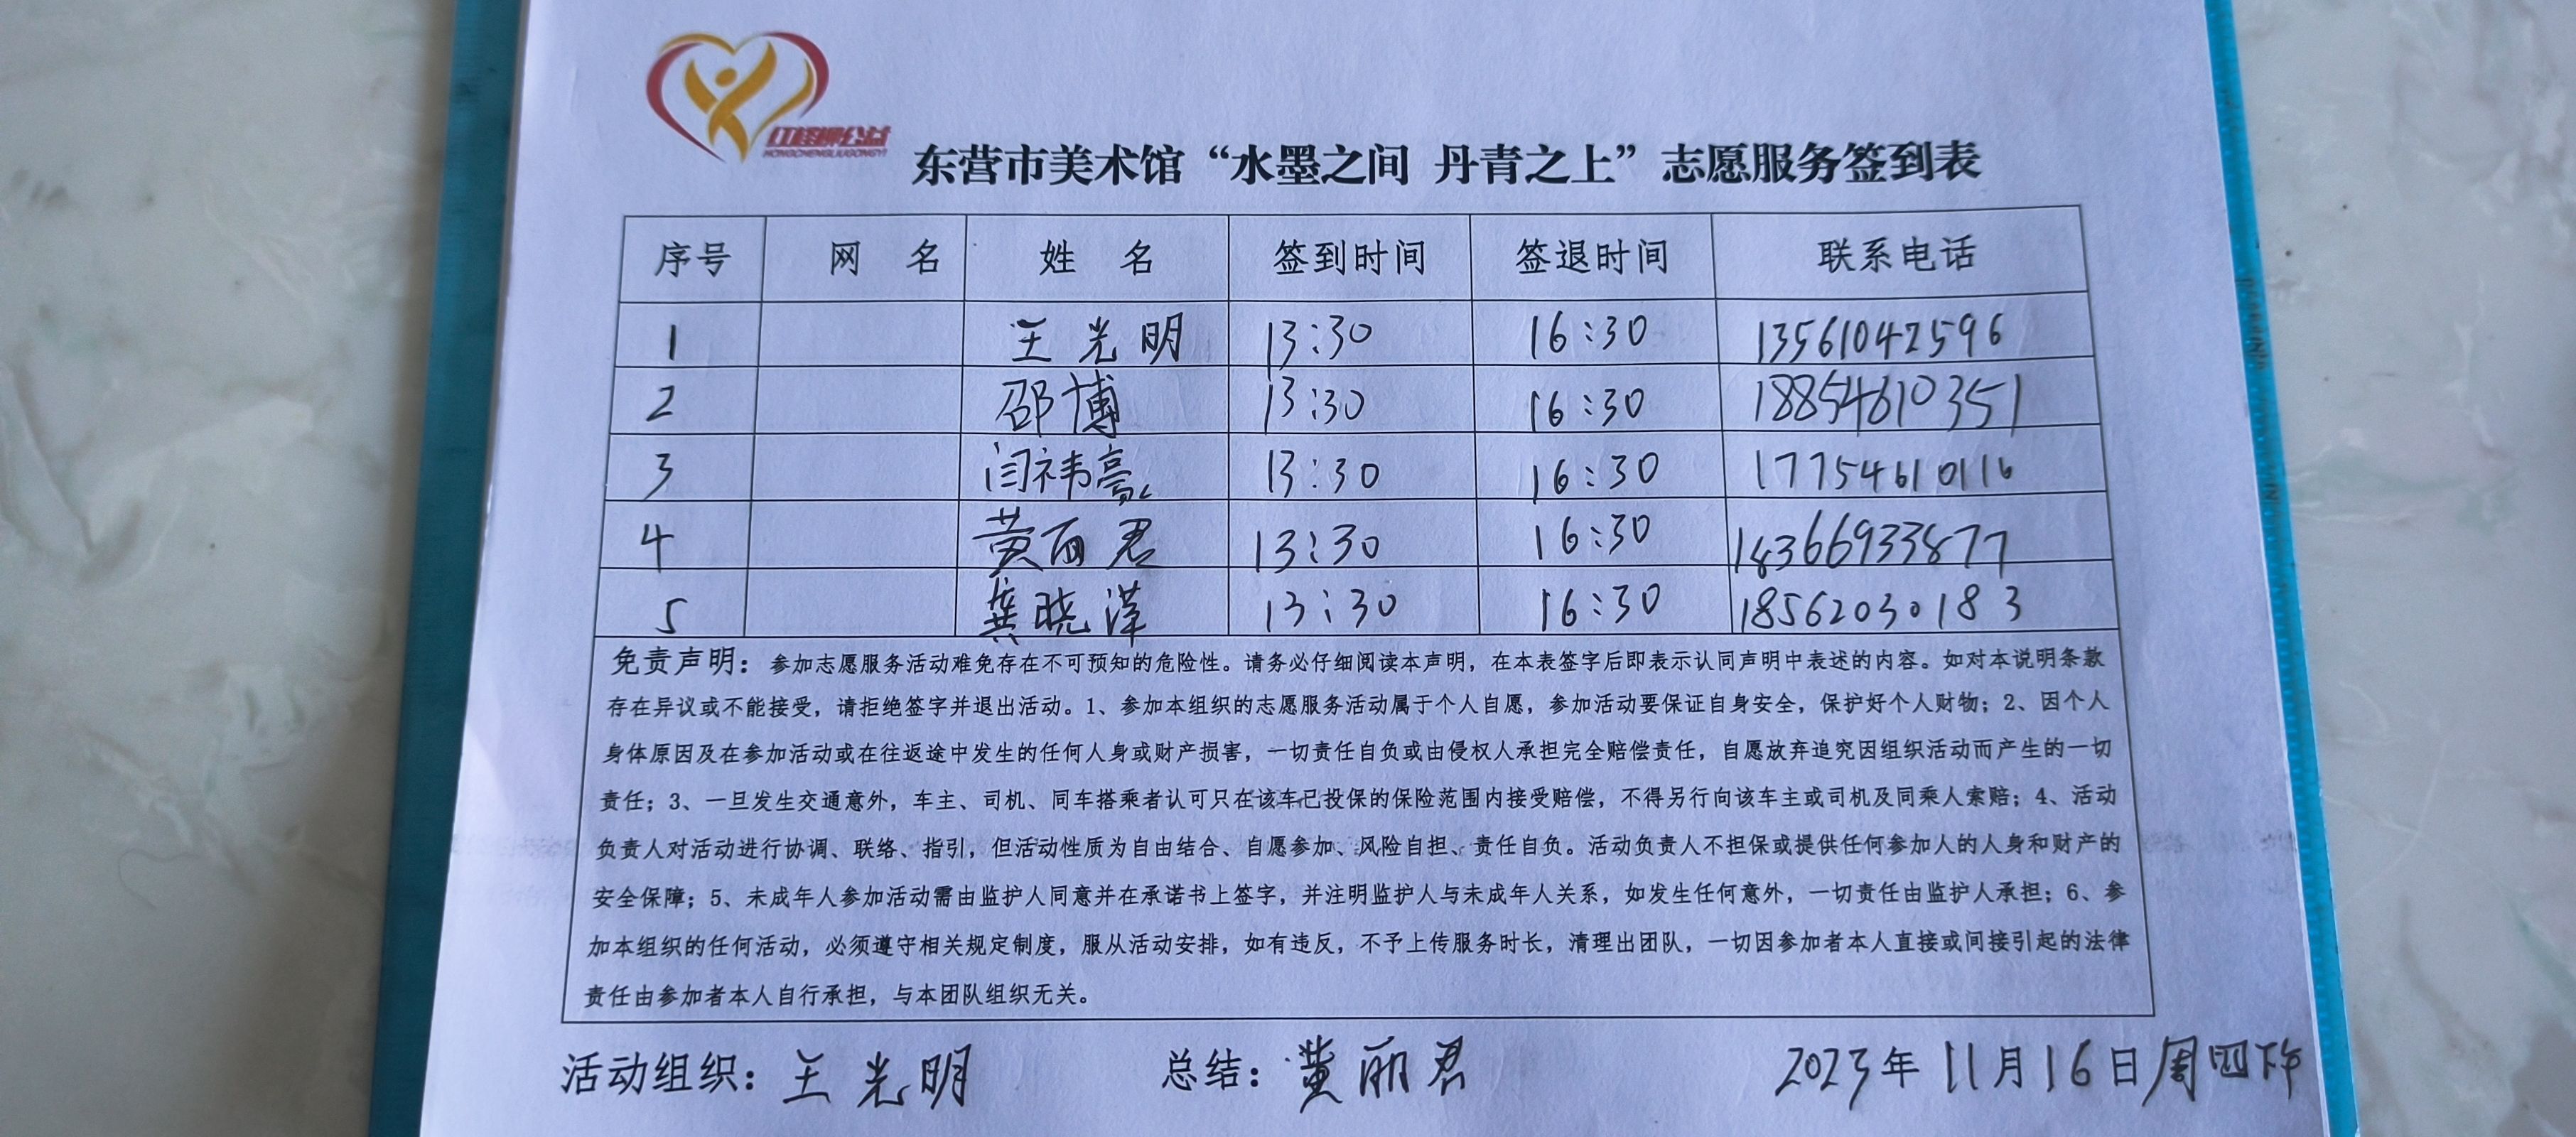 红城刘公益
HONGCHENGLIUGONGYI
东营市美术馆“水墨之间 丹青之上”志愿服务签到表
序号 网 名 姓 名 签到时间 签退时间 联系电话
1 王光明 13:30 16:30 13561042596
2 邵博 13:30 16:30 18854610351
3 闫祎亮 13:30 16:30 17754610116
4 黄丽君 13:30 16:30 18366933877
5 龚晓泽 13:30 16:30 18562030183
免责声明：参加志愿服务活动难免存在不可预知的危险性。请务必仔细阅读本声明，在本表签字后即表示认同声明中表述的内容。如对本说明条款
存在异议或不能接受，请拒绝签字并退出活动。1、参加本组织的志愿服务活动属于个人自愿，参加活动要保证自身安全，保护好个人财物；2、因个人
身体原因及在参加活动或在往返途中发生的任何人身或财产损害，一切责任自负或由侵权人承担完全赔偿责任，自愿放弃追究因组织活动而产生的一切
责任；3、一旦发生交通意外，车主、司机、同车搭乘者认可只在该车已投保的保险范围内接受赔偿，不得另行向该车主或司机及同乘人索赔；4、活动
负责人对活动进行协调、联络、指引，但活动性质为自由结合、自愿参加、风险自担、责任自负。活动负责人不担保或提供任何参加人的人身和财产的
安全保障；5、未成年人参加活动需由监护人同意并在承诺书上签字，并注明监护人与未成年人关系，如发生任何意外，一切责任由监护人承担；6、参
加本组织的任何活动，必须遵守相关规定制度，服从活动安排，如有违反，不予上传服务时长，清理出团队，一切因参加者本人直接或间接引起的法律
责任由参加者本人自行承担，与本团队组织无关。
活动组织：王光明 总结：黄丽君 2023年11月16日周四下午